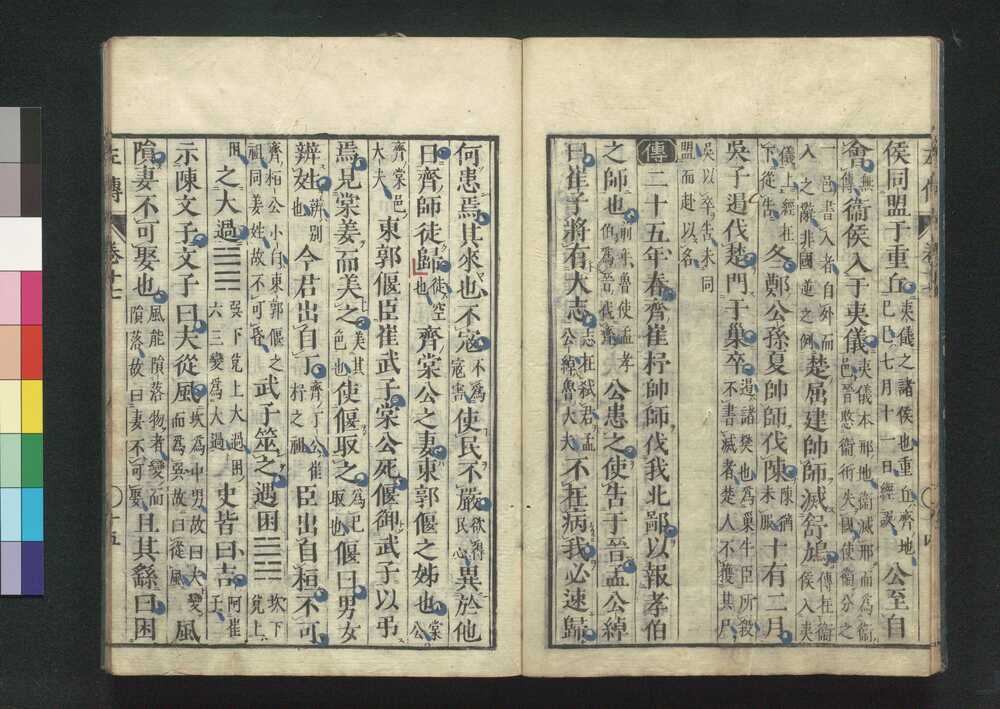 侯同盟于重丘夷儀之諸侯也重丘齊地己巳七月十一日經誤公至自
會無傳衞侯入于夷儀夷儀本邢地衞滅邢而為衞邑晉愍衞衎失國使衞分之
一邑書入者自外而入之辭非國逆之例楚屈建帥師滅舒鳩傳在衞侯入夷
儀上經在下從告冬鄭公孫夏帥師伐陳陳猶未服十有二月
吳子遏伐楚門于巢卒遏諸樊也為巢牛臣所殺不書滅者楚人不獲其尸
吳以卒告未同盟而赴以名
傳二十五年春齊崔杼帥師伐我北鄙以報孝伯
之師也前年魯使孟孝伯為晉伐齊公患之使告于晉孟公綽
曰崔子將有大志志在弑君孟公綽魯大夫不在病我必速歸
何患焉其來也不寇不為寇害使民不嚴欲得民心異於他
日齊師徒歸徒空也齊棠公之妻東郭偃之姊也棠公
齊棠邑大夫東郭偃臣崔武子棠公死偃御武子以弔
焉見棠姜而美之美其色也使偃取之為己取也偃曰男女
辨姓辨別也今君出自丁齊丁公崔杼之祖臣出自桓不可
齊桓公小白東郭偃之祖同姜姓故不可昏武子筮之遇困䷮坎下兌上
困之大過䷛巽下兌上大過困六三變為大過史皆曰吉阿崔子
示陳文子文子曰夫從風坎為中男故曰夫變而為巽故曰從風風
隕妻不可娶也風能隕落物者變而隕落故曰妻不可娶且其繇曰困
左傳
十五